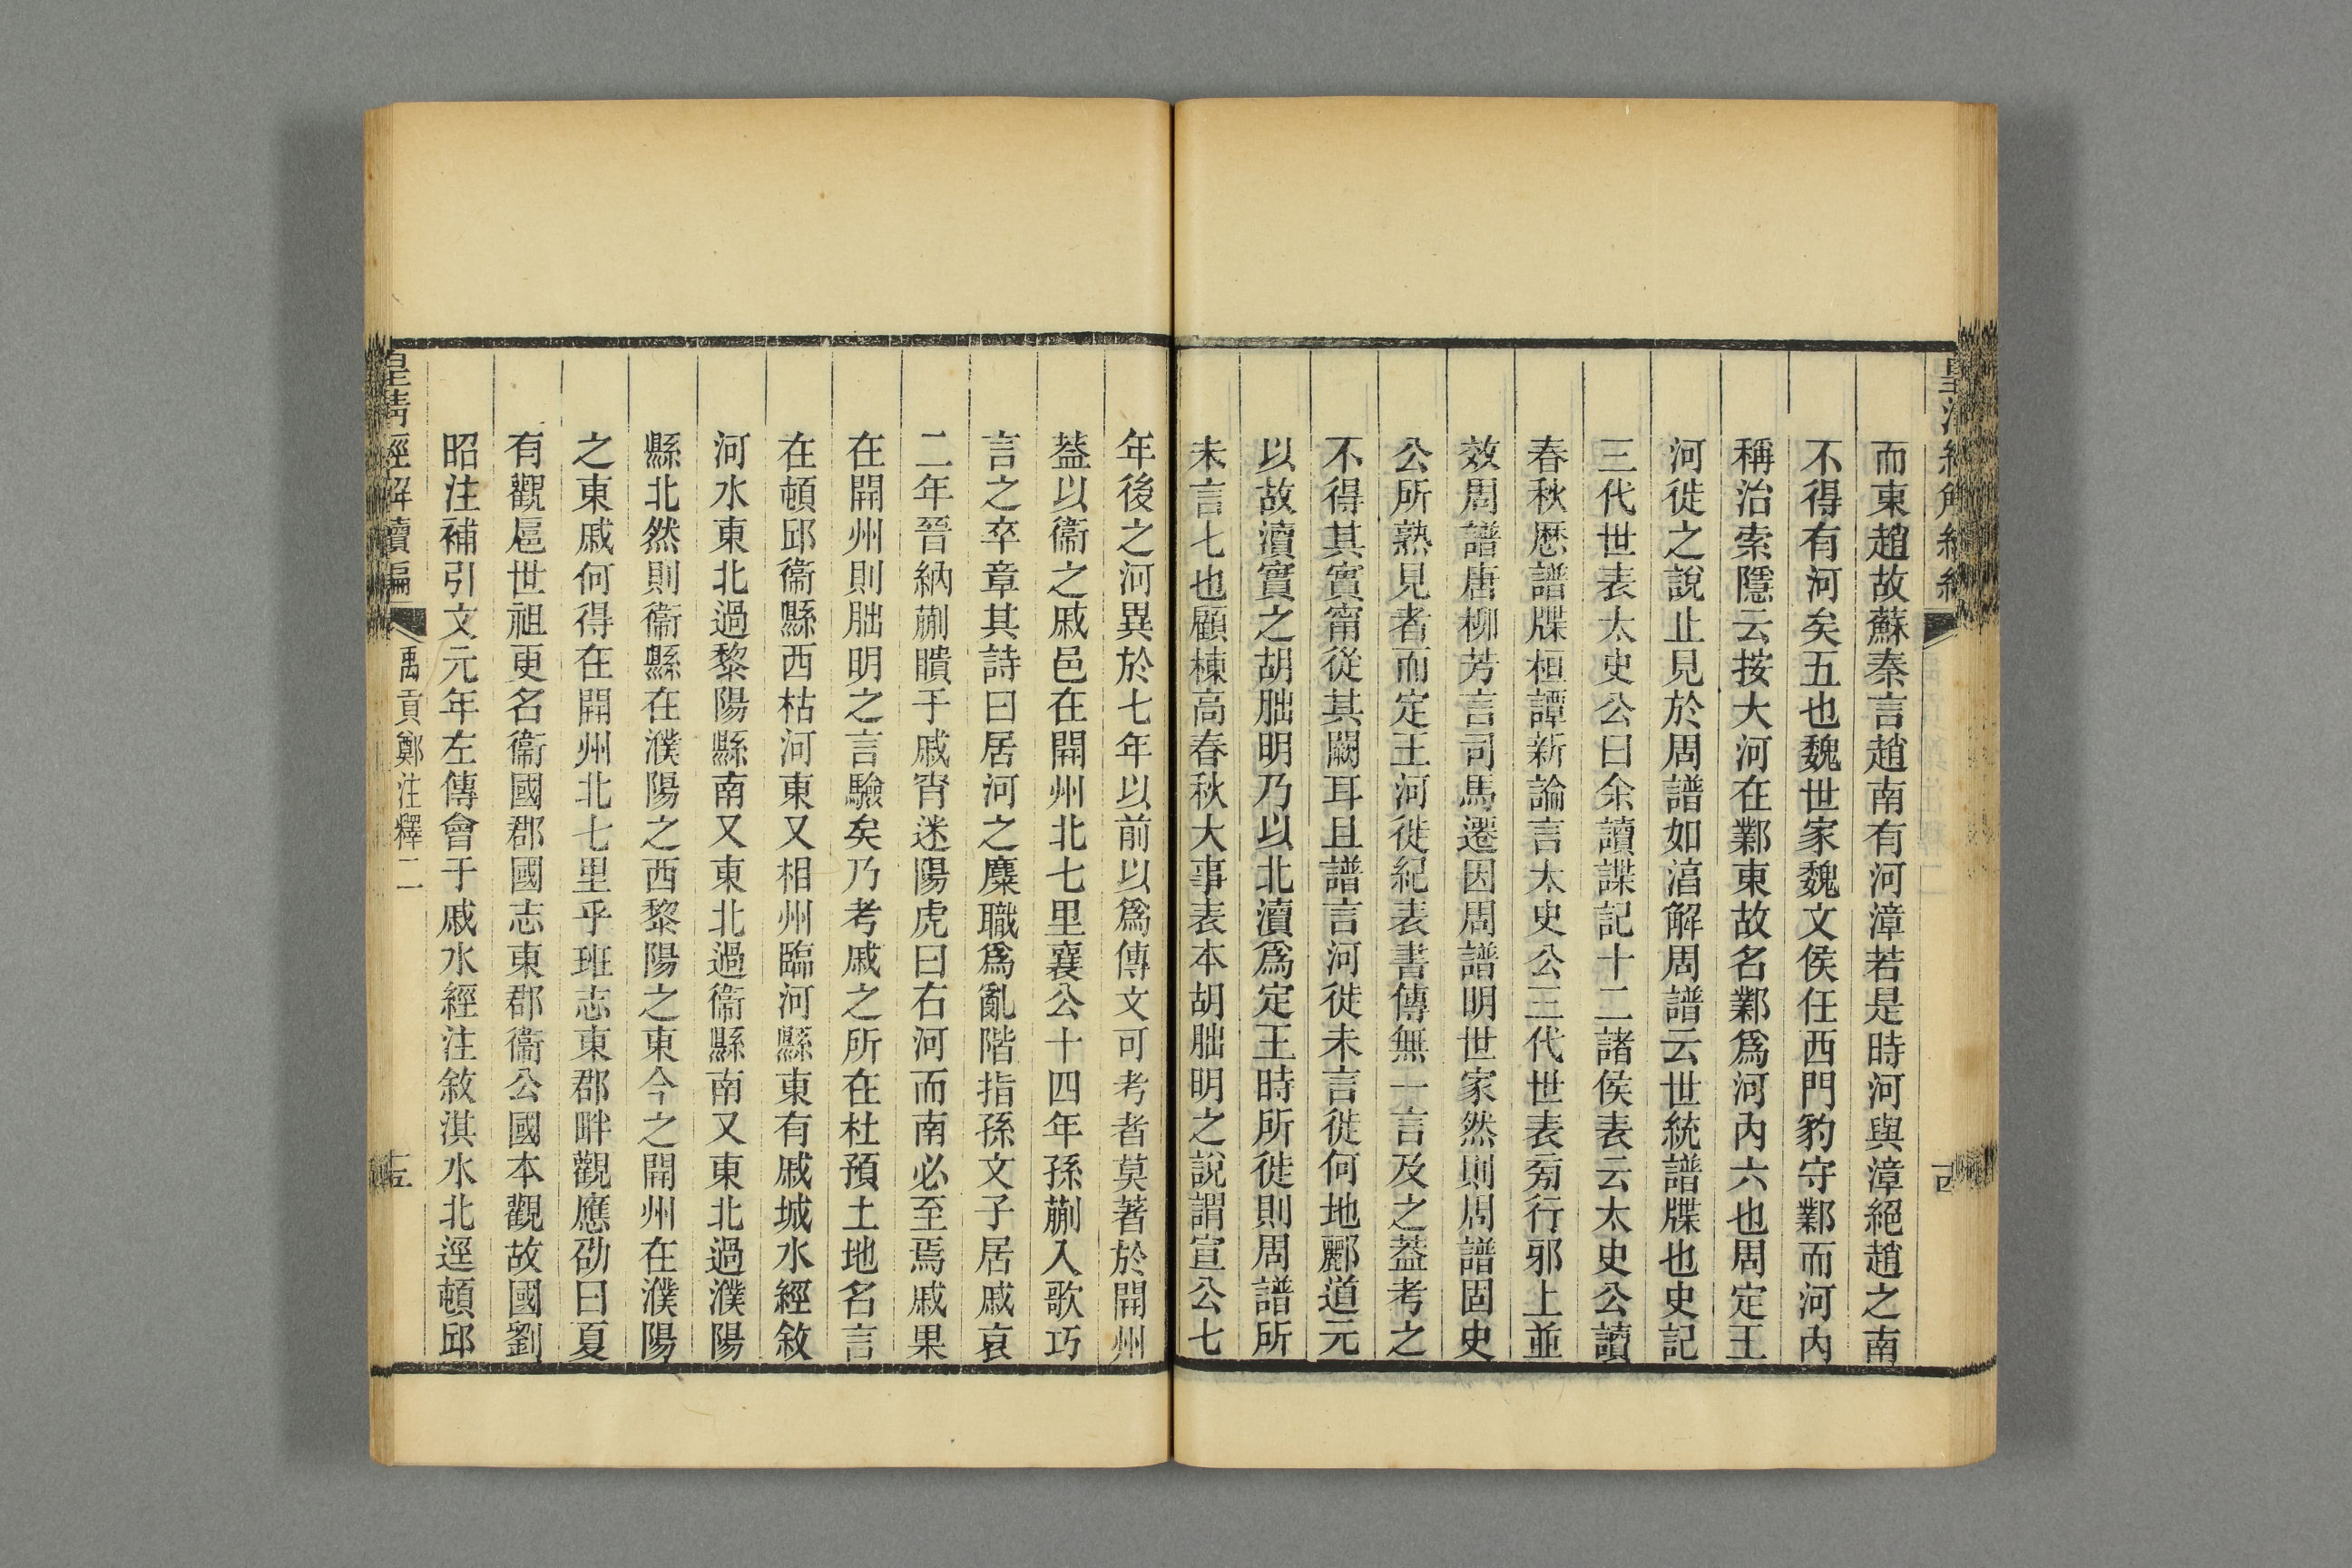 而東趙故蘇秦言趙南有河漳若是時河與漳絕趙之南
不得有河矣五也魏世家魏文侯任西門豹守鄴而河內
稱治索隱云按大河在鄴東故名鄴爲河內六也周定王
河徙之說止見於周譜如湻解周譜云世統譜牒也史記
三代世表太史公曰余讀諜記十二諸侯表云太史公讀
春秋厯譜牒桓譚新論言太史公三代世表㫄行邪上並
效周譜唐柳芳言司馬遷因周譜明世家然則周譜固史
公所熟見者而定王河徙紀表書傳無一言及之葢考之
不得其實甯從其闕耳且譜言河徙未言徙何地酈道元
以故瀆實之胡朏明乃以北瀆爲定王時所徙則周譜所
未言七也顧棟高春秋大事表本胡朏明之說謂宣公七
年後之河異於七年以前以爲傳文可考者莫著於開州
葢以衞之戚邑在開州北七里襄公十四年孫蒯入歌巧
言之卒章其詩曰居河之麋職爲亂階指孫文子居戚哀
二年晉納蒯聵于戚宵迷陽虎曰右河而南必至焉戚果
在開州則朏明之言驗矣乃考戚之所在杜預土地名言
在頓邱衞縣西枯河東又相州臨河縣東有戚城水經敘
河水東北過黎陽縣南又東北過衞縣南又東北過濮陽
縣北然則衞縣在濮陽之西黎陽之東今之開州在濮陽
之東戚何得在開州北七里乎班志東郡畔觀應劭曰夏
有觀扈世祖更名衞國郡國志東郡衞公國本觀故國劉
昭注補引文元年左傳會于戚水經注敘淇水北逕頓邱
皇清經解續編
禹貢鄭注釋二